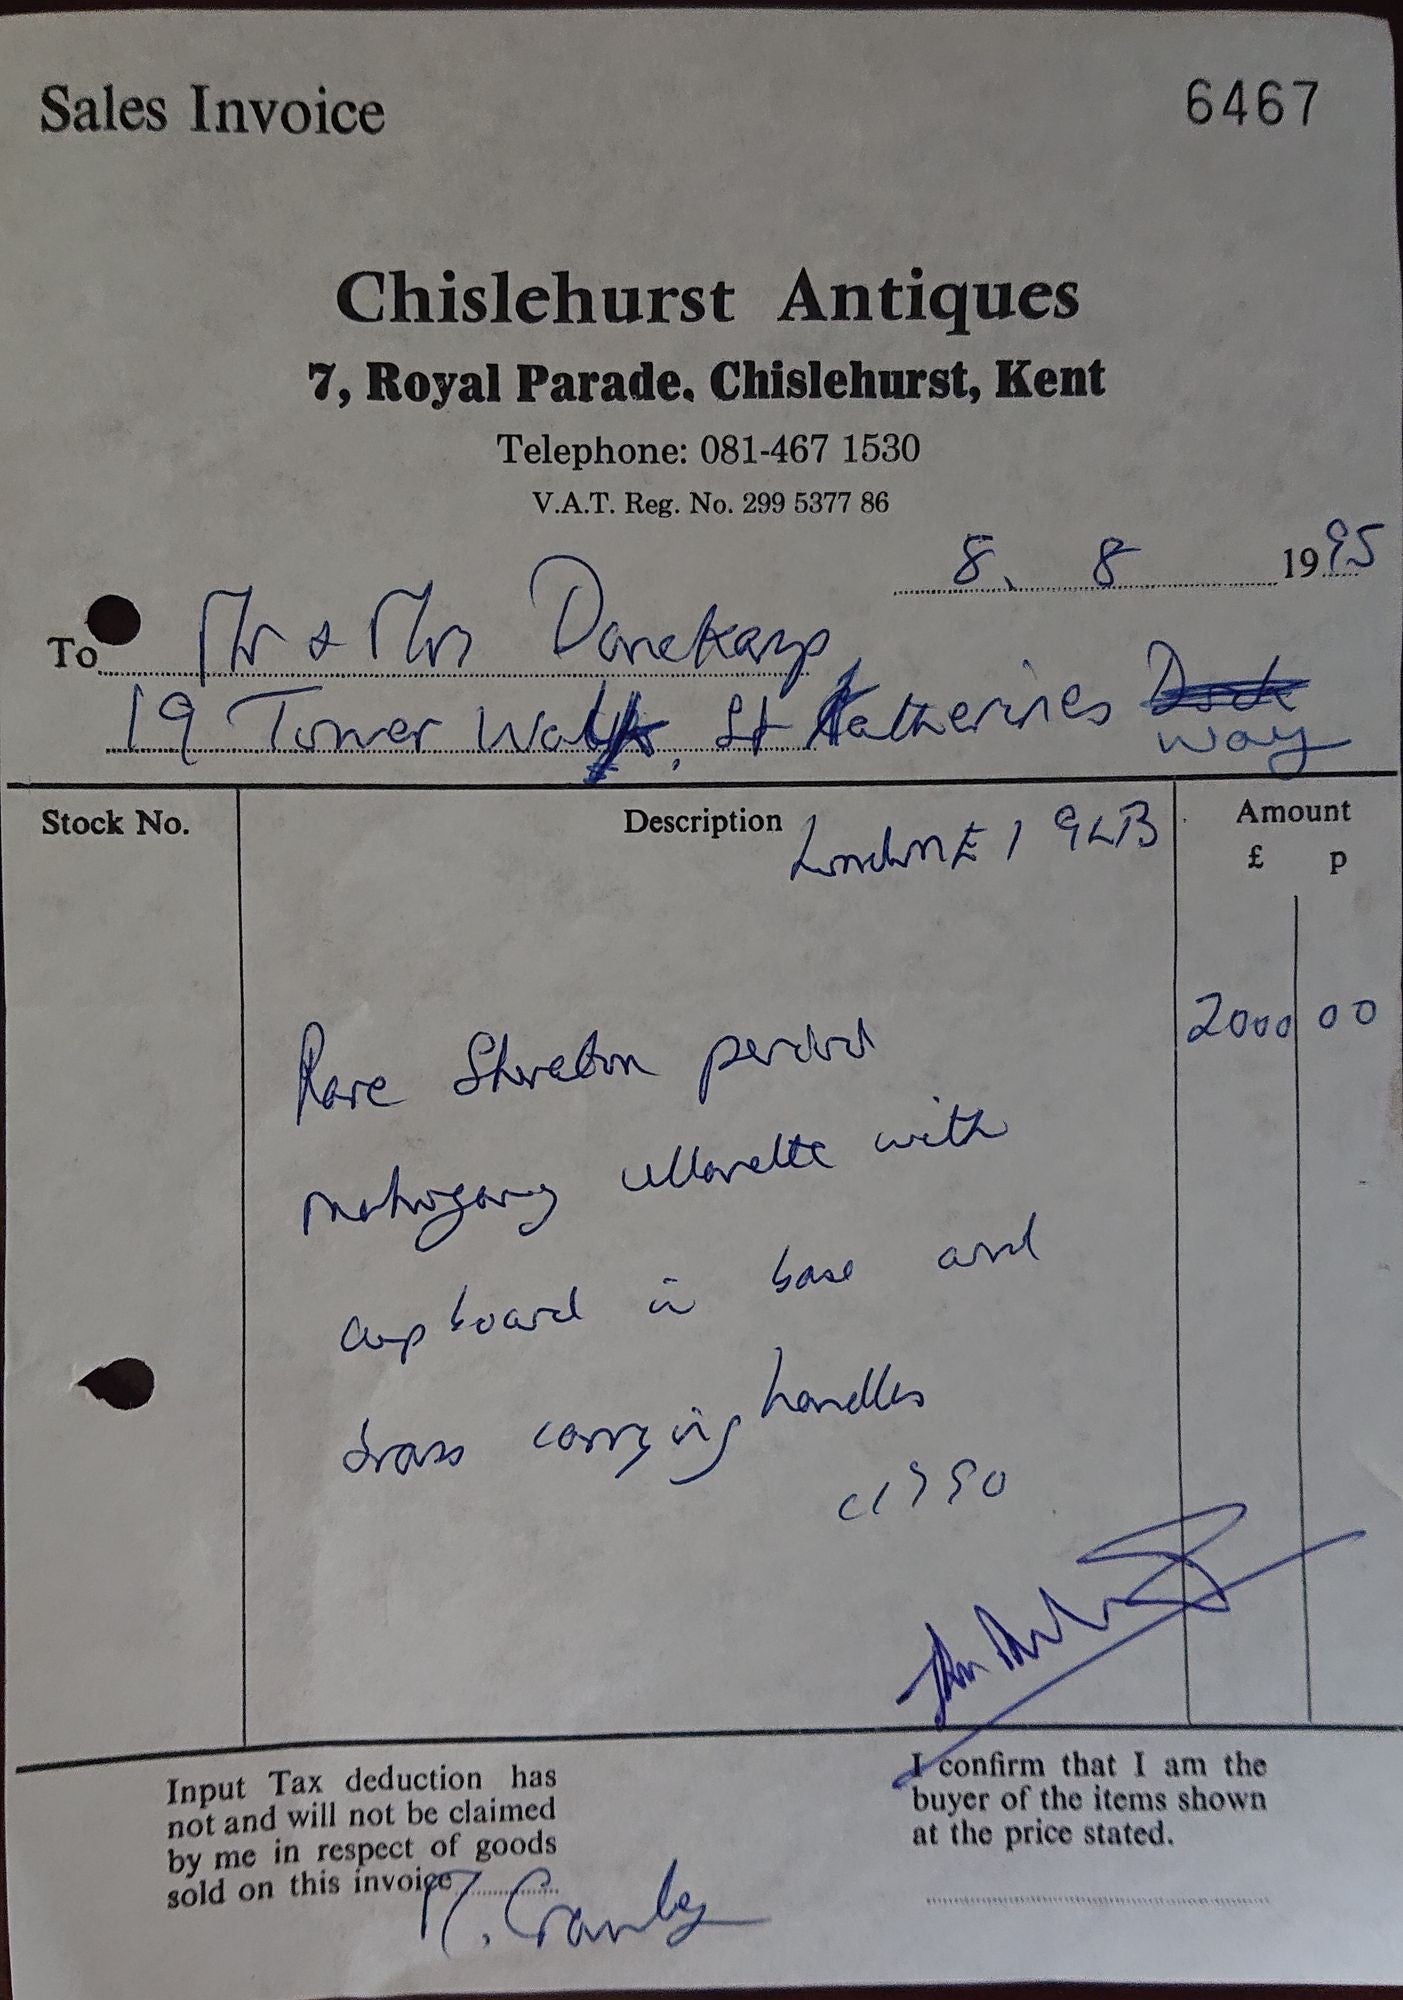 Sales Invoice 6467
Chislehurst Antiques
7, Royal Parade. Chislehurst, Kent
Telephone: 081-467 1530
V.A.T. Reg. No. 299 5377 86
8. 8 1995
To Mr & Mrs
19 Tower Walk, St Katherines
Way
Stock No. Description Amount
London E1 9LB
£ p
Rare Sheraton period 2000 00
mahogany cellarette with
cupboard in base and
brass carrying handles
c1790
Input Tax deduction has
not and will not be claimed
by me in respect of goods
sold on this invoice
I confirm that I am the
buyer of the items shown
at the price stated.